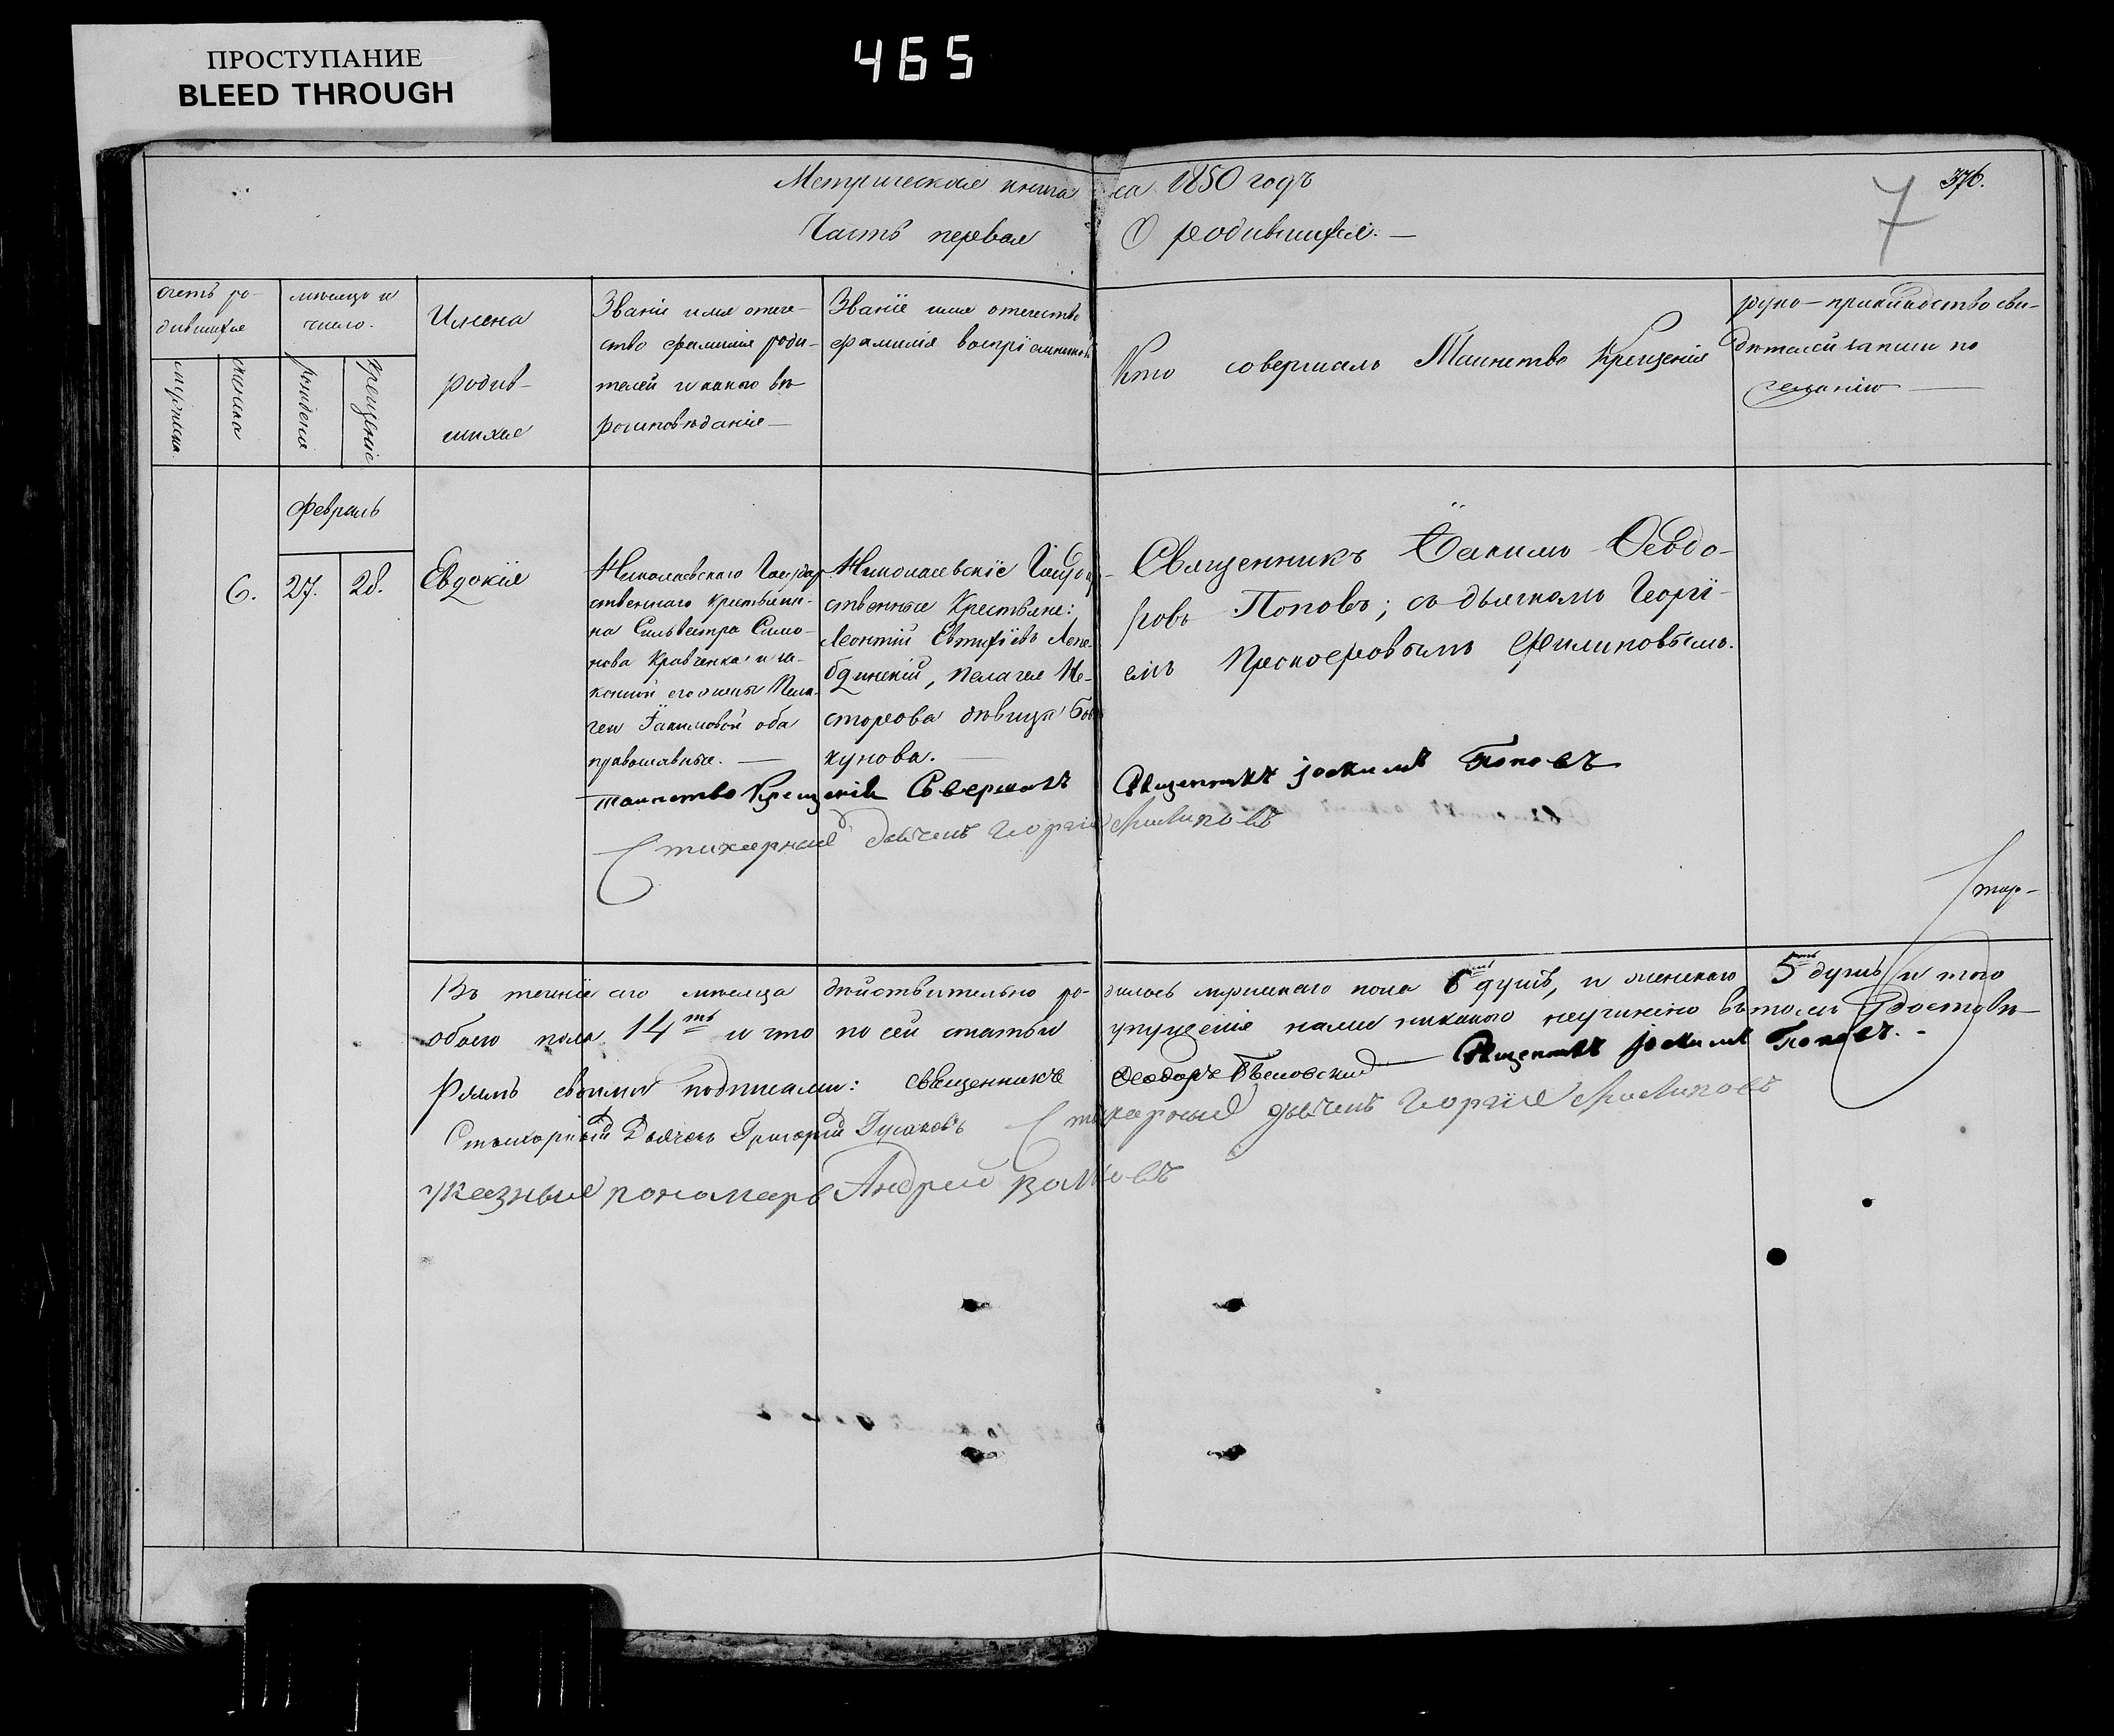 ПРОСТУПАНИЕ
BLEED THROUGH
465
Метрическая книга на 1850 годъ
376.
7
Часть первая О родившихся. —
счетъ ро-
дившихся
мужеска
женска
мѣсяцъ и
число.
рожденія
крещеніе
Имена
родив-
шихся
Званіе имя отече-
ство фамилія роди-
телей и какого вѣ-
роисповѣданія —
Званіе имя отечество
фамилія воспріемниковъ
Кто совершалъ Таинство Крещенія
руко-прикладство сви-
дѣтелей записи по
желанію
Февраль
6. 27. 28.
Евдокія
Николаевскаго Государ-
ственнаго крестьяни-
на Сильвестра Симо-
нова Кравченка и за-
конной его жены Пела-
геи Іакимовой оба
православные. —
Николаевскіе Государ-
ственные Крестьяне:
Леонтій Евтифіевъ
Пелагея Не-
сторова дѣвица
кунова. —
Священникъ Іакимъ Ѳеодо-
ровъ Поповъ; съ дьячкомъ Георгі-
емъ Филиповымъ.
таинство Крещенія Совершалъ Священникъ Іоакимъ Поповъ
Стихарный дьячекъ Георгій Филиповъ
Въ теченіе сего мѣсяца дѣйствительно ро- дилось мужескаго пола душъ, и женскаго 5 душъ и того
обоего пола 14ть и что по сей статьи упущенія нами никакого неучинено въ томъ Удостовѣ-
ряемъ своими подписами: Священникъ Ѳеодоръ Священникъ Іоакимъ Поповъ. -
Стихарный Дьячекъ Григорій Гусаковъ Стихарный дьячекъ Георгій Филиповъ
указный пономарь Андрей Волковъ